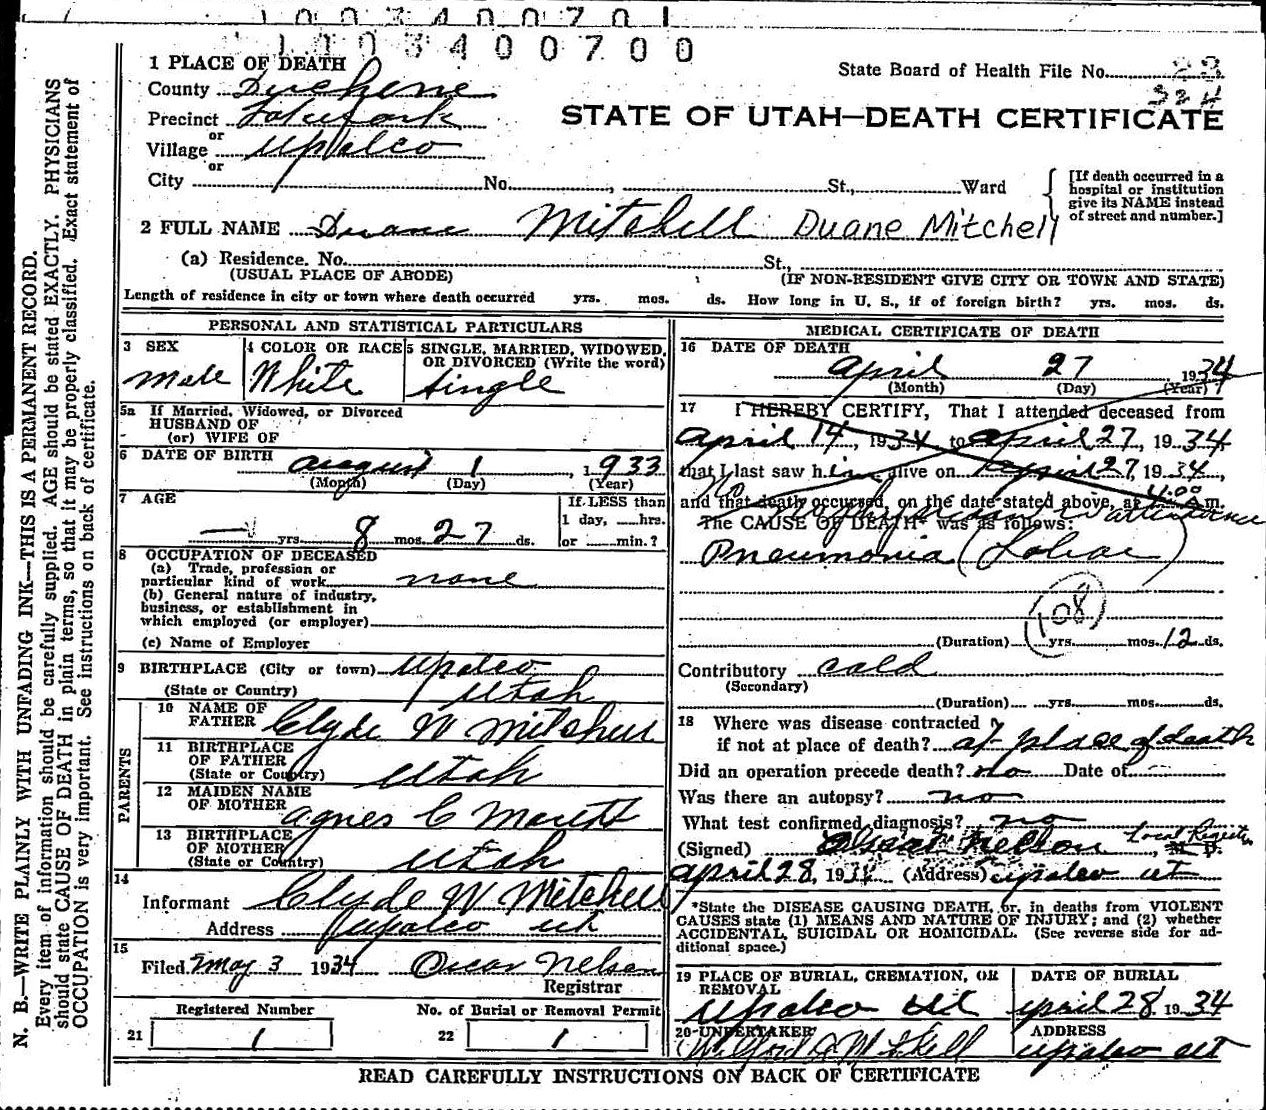 1003400701
1003400700
1 PLACE OF DEATH
State Board of Health File No. 23
324
County Duchene
STATE OF UTAH—DEATH CERTIFICATE
Precinct
or
Village Upalco
or
City No. , St., Ward
[If death occurred in a hospital or institution give its NAME instead of street and number.]
2 FULL NAME Duane Mitchell Duane Mitchell
(a) Residence. No. St.,
(USUAL PLACE OF ABODE) (IF NON-RESIDENT GIVE CITY OR TOWN AND STATE)
Length of residence in city or town where death occurred yrs. mos. ds. How long in U. S., if of foreign birth? yrs. mos. ds.
PERSONAL AND STATISTICAL PARTICULARS
3 SEX
Male
4 COLOR OR RACE
White
5 SINGLE, MARRIED, WIDOWED,
OR DIVORCED (Write the word)
Single
5a If Married, Widowed, or Divorced
HUSBAND OF
(or) WIFE OF
6 DATE OF BIRTH August 1, 1933
(Month) (Day) (Year)
7 AGE
— yrs. 8 mos. 27 ds.
If LESS than
1 day, hrs.
or min.?
8 OCCUPATION OF DECEASED
(a) Trade, profession or
particular kind of work none
(b) General nature of industry,
business, or establishment in
which employed (or employer)
(c) Name of Employer
9 BIRTHPLACE (City or town) Upalco
(State or Country) Utah
PARENTS
10 NAME OF
FATHER Clyde W Mitchell
11 BIRTHPLACE
OF FATHER
(State or Country) Utah
12 MAIDEN NAME
OF MOTHER Agnes C
13 BIRTHPLACE
OF MOTHER
(State or Country) Utah
14
Informant Clyde W Mitchell
Address Upalco Ut
15
Filed May 3 1934 Oscar Nelson
Registrar
Registered Number
21 1
No. of Burial or Removal Permit
22 1
MEDICAL CERTIFICATE OF DEATH
16 DATE OF DEATH
April 27 1934
(Month) (Day) (Year)
17 I HEREBY CERTIFY, That I attended deceased from
April 14, 1934 to April 27, 1934
that I last saw him alive on April 27, 1934,
and that death occurred, on the date stated above, at 4:00 A m.
No physician in attendance
The CAUSE OF DEATH* was as follows:
Pneumonia (Lobar)
108
(Duration) yrs. mos. 12 ds.
Contributory Cold
(Secondary)
(Duration) yrs. mos. ds.
18 Where was disease contracted
if not at place of death? at place of death
Did an operation precede death? no Date of —
Was there an autopsy? no
What test confirmed diagnosis? no
(Signed) Oscar Nelson Local Register, M. D.
April 28, 1934 (Address) Upalco Ut
*State the DISEASE CAUSING DEATH, or, in deaths from VIOLENT
CAUSES state (1) MEANS AND NATURE OF INJURY; and (2) whether
ACCIDENTAL, SUICIDAL OR HOMICIDAL. (See reverse side for ad-
ditional space.)
19 PLACE OF BURIAL, CREMATION, OR
REMOVAL
Upalco Ut
DATE OF BURIAL
April 28 1934
20 UNDERTAKER
Wilford Mitchell
ADDRESS
Upalco Ut
READ CAREFULLY INSTRUCTIONS ON BACK OF CERTIFICATE
N. B.—WRITE PLAINLY WITH UNFADING INK—THIS IS A PERMANENT RECORD.
Every item of information should be carefully supplied. AGE should be stated EXACTLY. PHYSICIANS
should state CAUSE OF DEATH in plain terms, so that it may be properly classified. Exact statement of
OCCUPATION is very important. See instructions on back of certificate.